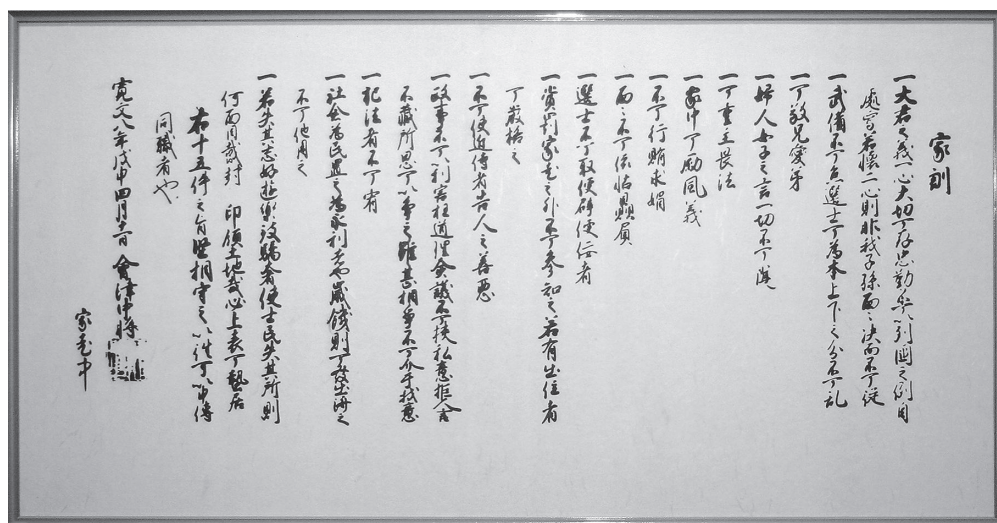 家訓
一大君之義一心大切可存忠勤不可以列國之例自
處焉若懐二心則非我子孫面々決而不可従
一武備不可怠選士可為本上下之分不可乱
一可敬兄愛弟
一婦人女子之言一切不可聞
一可重主畏法
一家中可励風義
一不可行賄求媚
一面々不可依怙贔屓
一選士不可取便辟便侫者
一賞罰家老之外不可参知之若有出位者
可厳格之
一不可使近侍者告人之善悪
一政事不可以利害枉道理僉議不可挟私意拒人言
不蔵所思可以争之雖甚相争不可介于我意
一犯法者不可宥
一社倉為民置之為永利者也歳饑則可發出濟之
不可他用之
一若失其志好遊樂致驕奢使士民失其所則
何面目戴封印領土地哉必上表可蟄居
右十五件之旨堅相守之以往可以申傳
同職者也
寛文八年戊申四月十一日 會津中将
家老中